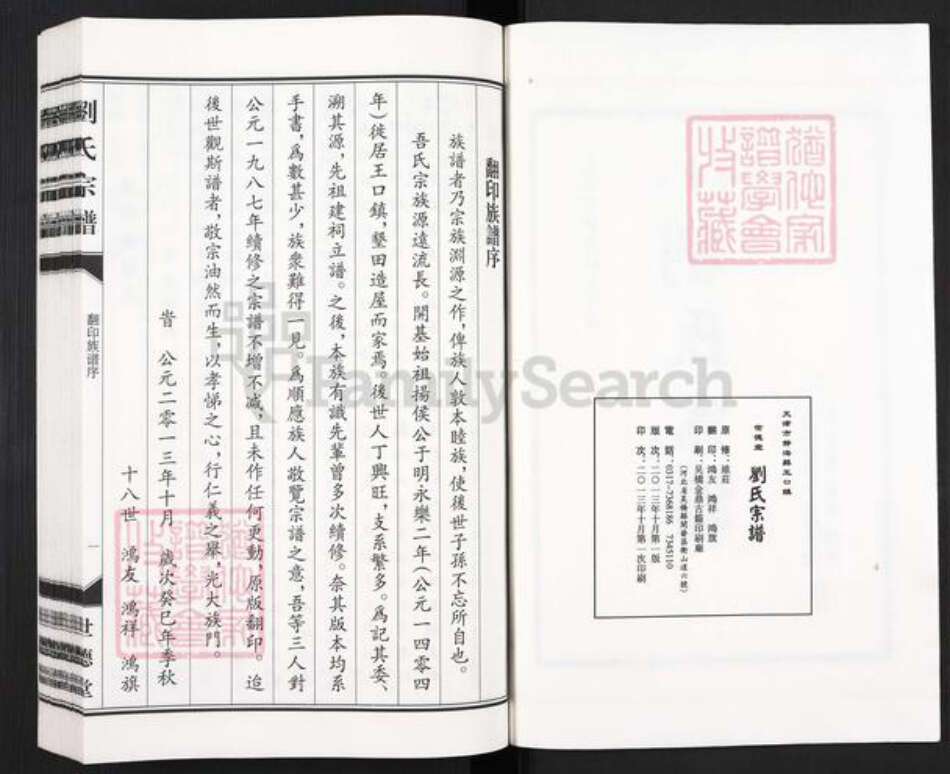 天津市靜海縣王口鎮
劉氏宗譜
原修：維莊
翻印：鴻友 鴻祥 鴻旗
印刷：吳橋金鼎古籍印刷廠
（河北省吳橋縣開發區衡山道六號）
電話：0317-7368186 7345110
版次：二〇一三年十月第一版
印次：二〇一三年十月第一次印刷
譜學會
收藏
翻印族譜序
族譜者乃宗族淵源之作，俾族人敦本睦族，使後世子孫不忘所自也。
吾氏宗族源遠流長。開基始祖揚侯公于明永樂二年（公元一四零四
年）徙居王口鎮，墾田造屋而家焉。後世人丁興旺，支系繁多。爲記其委、
溯其源，先祖建祠立譜。之後，本族有識先輩曾多次續修。奈其版本均系
手書，爲數甚少，族衆難得一見。爲順應族人敬覽宗譜之意，吾等三人對
公元一九八七年續修之宗譜不增不减，且未作任何更動，原版翻印。迨
後世觀斯譜者，敬宗油然而生，以孝悌之心，行仁義之舉，光大族門。
旹 公元二零一三年十月 歲次癸巳年季秋
十八世 鴻友 鴻祥 鴻旗
劉氏宗譜
翻印族譜序
一
世德堂
FamilySearch